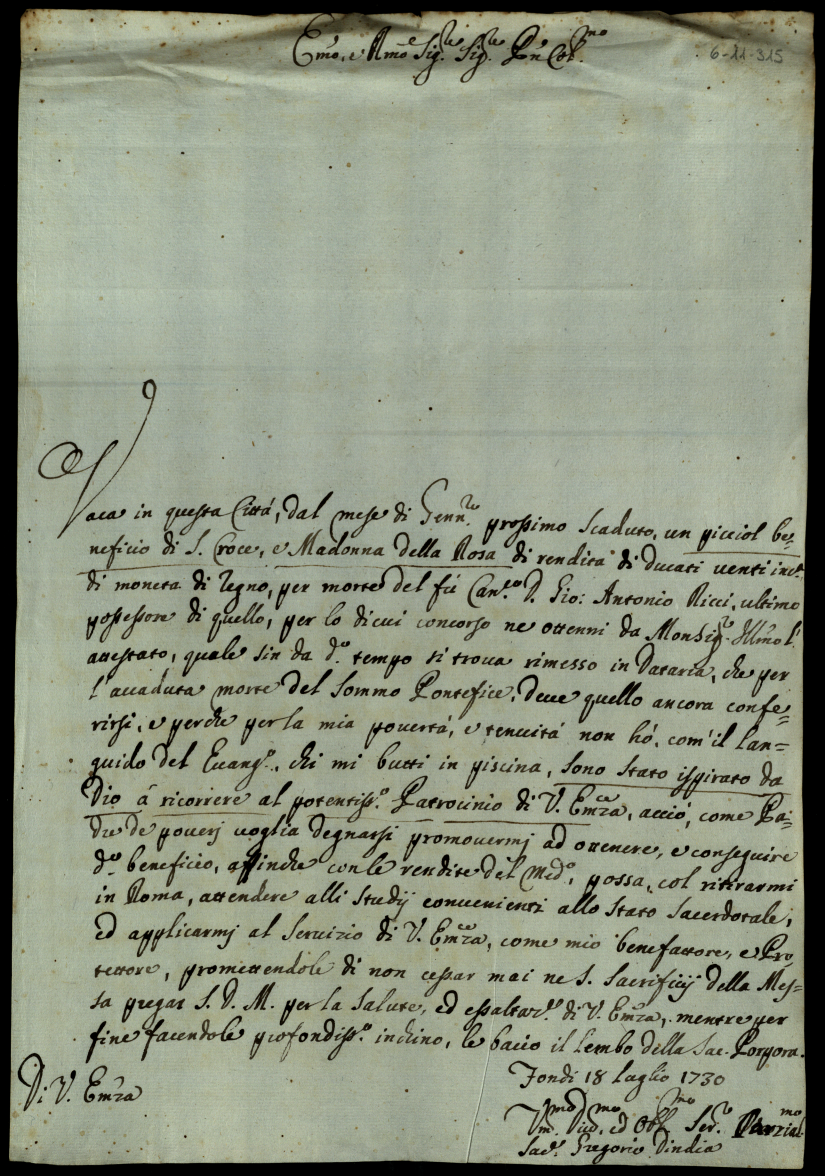 Em̃o, e Rm̃o Sig.re Sig.re Pñ Col.mo
6-11-315
Vaca in questa Città, dal mese di Genn.ro prossimo scaduto, un picciol be=
neficio di S. Croce, e Madonna della Rosa di rendita di ducati venti
di moneta di Regno, per morte del fù Can.co D. Gio: Antonio Ricci, ultimo
possessore di quello, per lo di cui concorso ne ottenni da Monsig.r Illm̃o l'
attestato, quale sin da d.o tempo si trova rimesso in Dataria, che per
l'accaduta morte del Sommo Pontefice, deve quello ancora confe=
rirsi, e perche per la mia povertà, e tenuità non hò, com'il lan=
guido del Evang.o, chi mi butti in piscina, sono stato ispirato da
Dio à ricorrere al potentiss.o Patrocinio di V. Em̃za, acciò, come Pa=
dre de poveri voglia degnarsi promovermj ad ottenere, e conseguire
d.o beneficio, affinche con le rendite del med.o, possa, col ritirarmi
in Roma, attendere alli studij convenienti allo stato sacerdotale,
ed applicarmj al servizio di V. Em̃za, come mio benefattore, e Pro
tettore, promettendole di non cessar mai ne S. Sacrificij della Mes=
sa pregar S. D. M. per la salute, ed essaltaz.e di V. Em̃za, mentre per
fine facendole profondiss.o inchino, le bacio il lembo della Sac. Porpora.
Di V. Em̃za
Fondi 18 luglio 1730
Um.mo Div.mo, ed Obl.mo Ser.re
Sac.e Gregorio Dindia